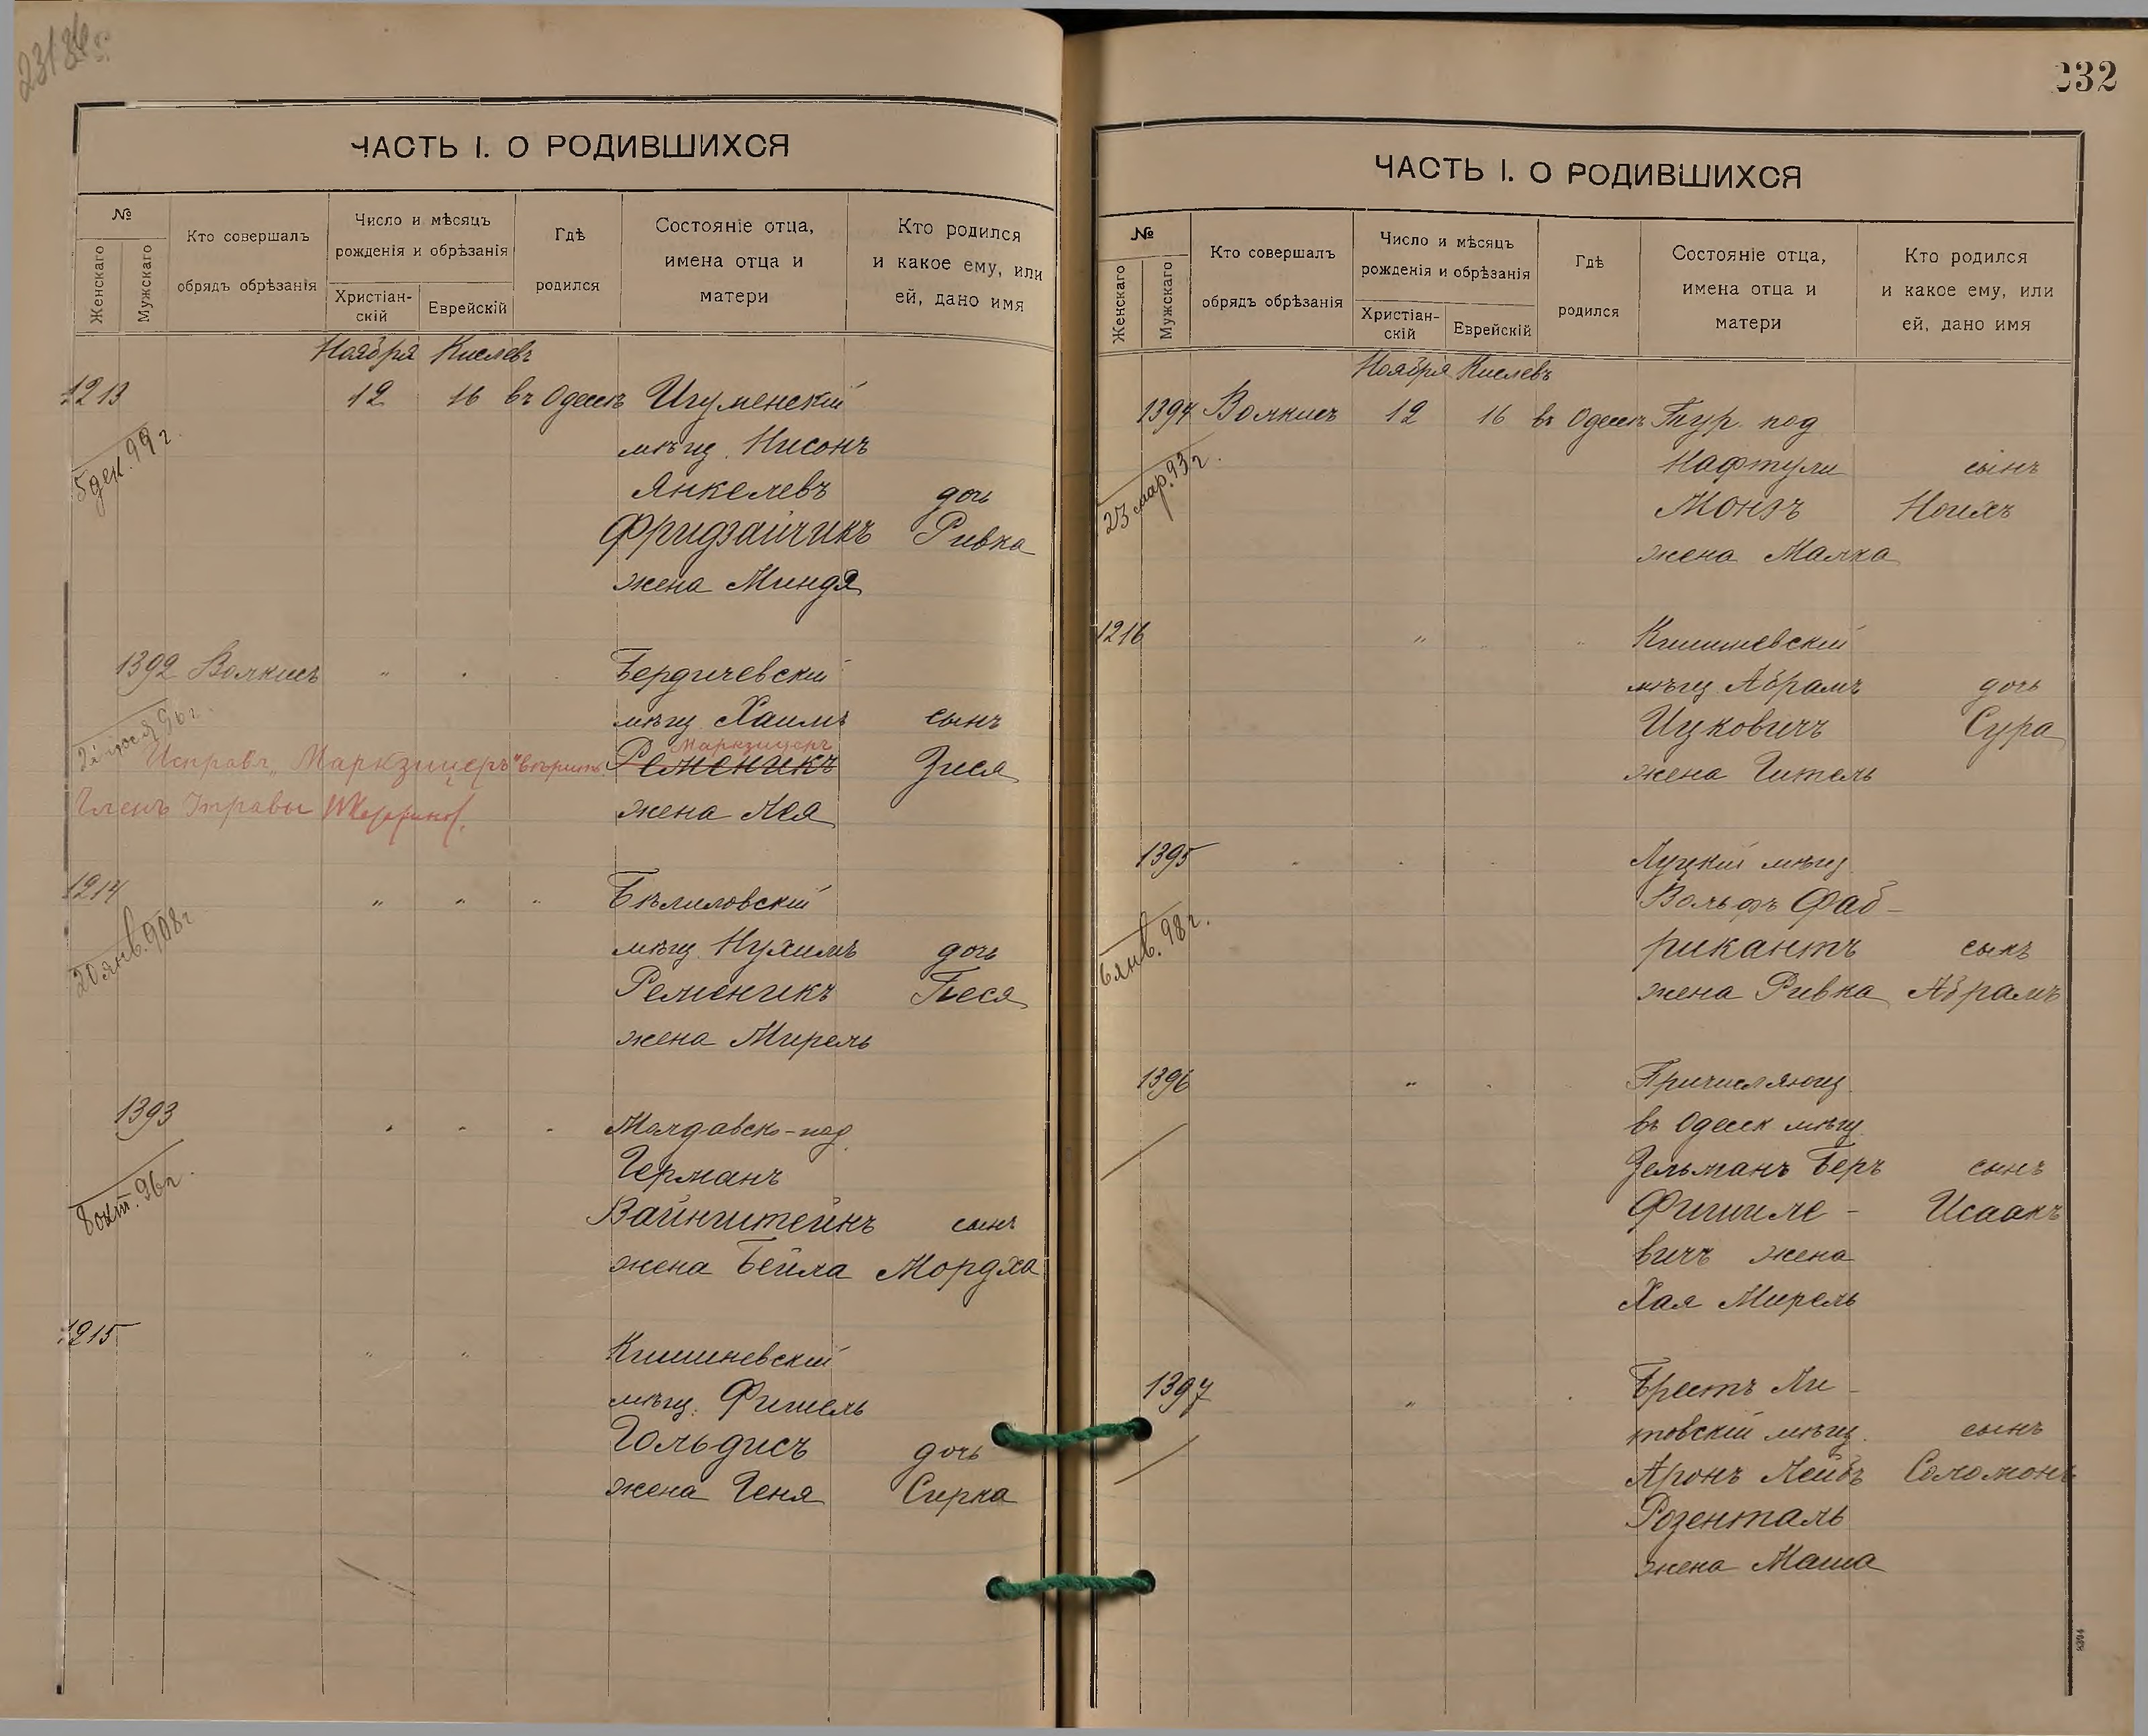 ЧАСТЬ I. О РОДИВШИХСЯ
№
Женскаго
Мужскаго
Кто совершалъ
обрядъ обрѣзанія
Число и мѣсяцъ
рожденія и обрѣзанія
Христіан-
скій
Еврейскій
Гдѣ
родился
Состояніе отца,
имена отца и
матери
Кто родился
и какое ему, или
ей, дано имя
Ноября Кислевъ
1213 12 16 въ Одессѣ Игуменскій
мѣщ. Нисонъ
5 дек. 99 г.
Янкелевъ дочь
Фридзайчикъ Ривка
жена Миндя
1392 Волкисъ " " Бердичевскій
мѣщ. Хаимъ сынъ
96 г.
Маркзицеръ
Исправл. „Маркзицеръ" вѣрить. Ременикъ Зися
Членъ Управы
жена Лея
1214 " " " Бѣлиловскій
20 янв. 908 г.
мѣщ. Нухимъ дочь
Ременикъ Песя
жена Мирель
1393 " " " Молдавско-под.
Германъ
8 окт. 96 г.
Вайнштейнъ сынъ
жена Бейла Мордха
1215 " " Кишиневскій
мѣщ. Фишель
Гольдисъ дочь
жена Геня Сирка
232
ЧАСТЬ I. О РОДИВШИХСЯ
№
Женскаго
Мужскаго
Кто совершалъ
обрядъ обрѣзанія
Число и мѣсяцъ
рожденія и обрѣзанія
Христіан-
скій
Еврейскій
Гдѣ
родился
Состояніе отца,
имена отца и
матери
Кто родился
и какое ему, или
ей, дано имя
Ноября Кислевъ
1394 Волкисъ 12 16 въ Одессѣ Тур. под.
23 мар. 93 г.
Нафтули сынъ
Монзъ Ноихъ
жена Малка
1216 " " " Кишиневскій
мѣщ. Абрамъ дочь
Ицковичъ Сура
жена Гитель
1395 " " " Луцкій мѣщ.
Вольфъ Фаб-
6 янв. 98 г.
рикантъ сынъ
жена Ривка Абрамъ
1396 " " " Причисляющ.
въ Одесск. мѣщ.
Зельманъ Беръ сынъ
Фишиле- Исаакъ
вичъ жена
Хая Мирель
1397 " " Брестъ Ли-
товскій мѣщ. сынъ
Аронъ Лейбъ Соломонъ
Розенталь
жена Маша